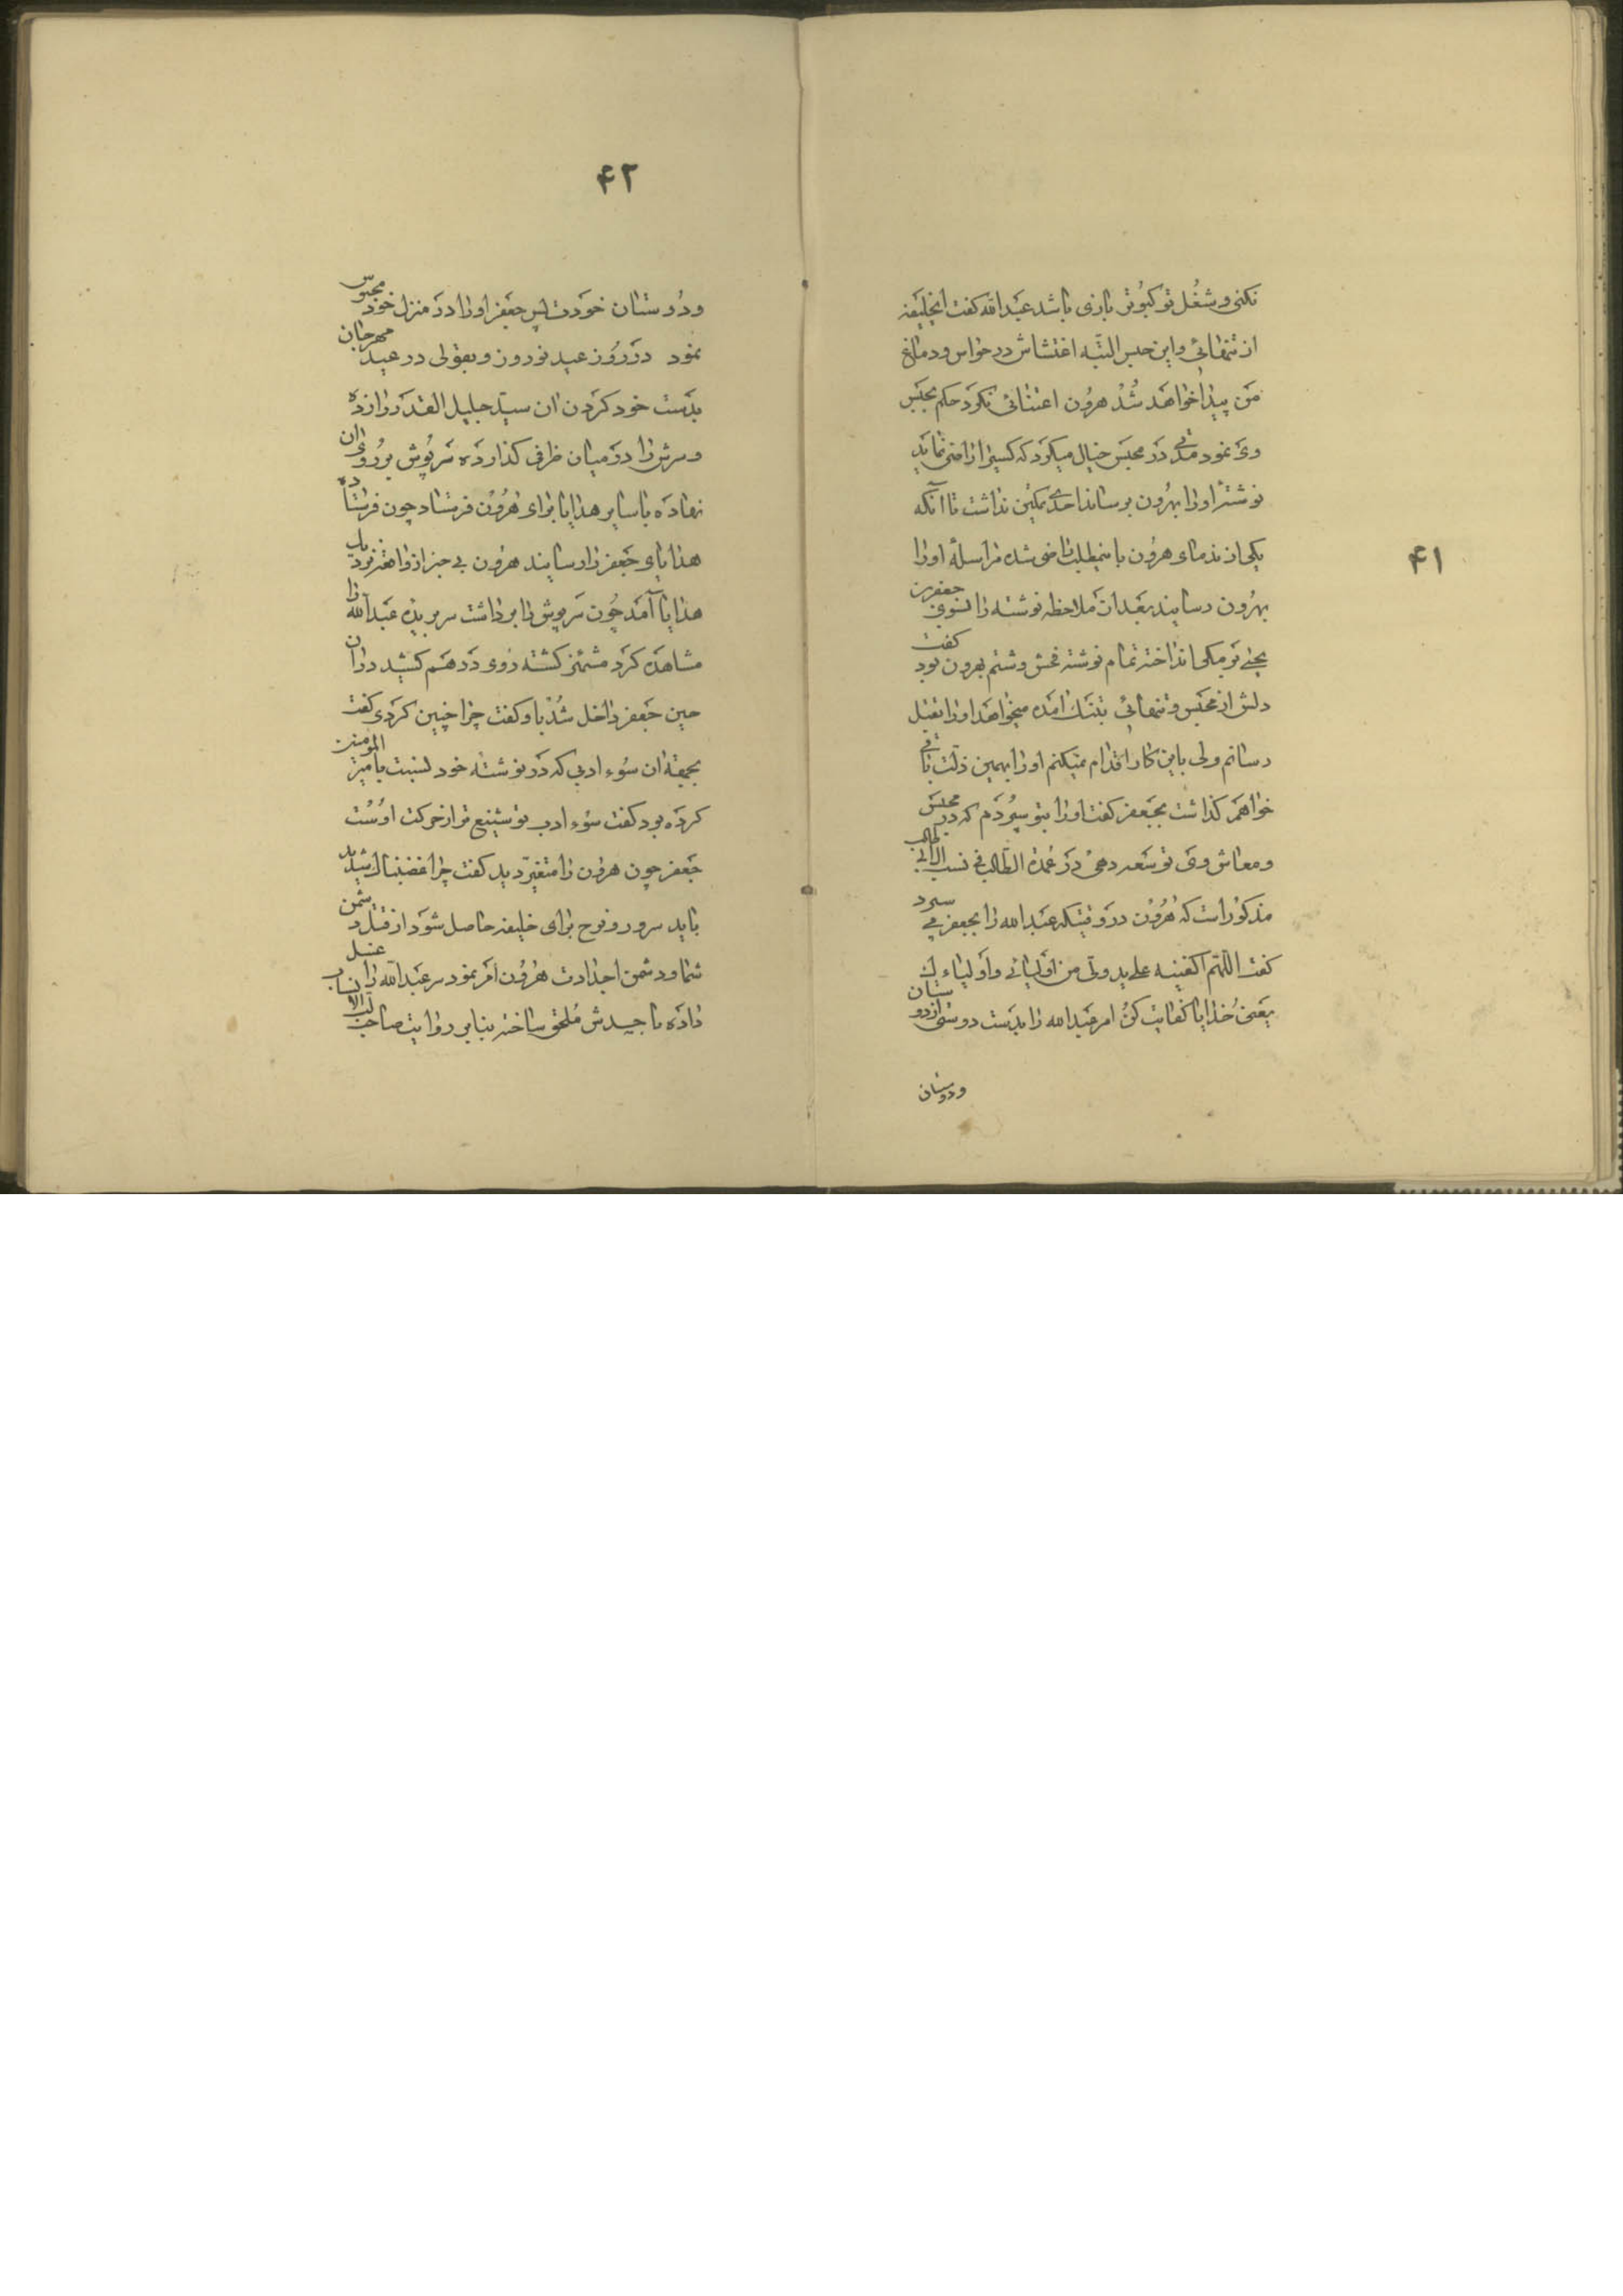 ۴۱
نکنی و شغل تو کبوتر بازی باشد عبدالله گفت ایخلیفه
از تنهائی و این حبس البته اغتشاش در حواس و دماغ
من پیدا خواهد شد هرون اعتنائی نکرد حکم بحبس
وی نمود مدتی در محبس خیال میکرد که کسیرا راضی نماید
نوشتهٔ او را بهرون برساند احدی تمکین نداشت تا آنکه
یکی از ندمای هرون باینمطلب راضی شده مراسلهٔ او را
بهرون رسانید بعد از ملاحظه نوشته را بسوی جعفر بن
یحیی برمکی انداخته تمام نوشته فحش و شتم بهرون بود گفت
دلش از محبس و تنهائی بتنک آمده میخواهد او را بقتل
رسانم ولی باین کار اقدام نمیکنم او را بهمین ذلت باقی
خواهم گذاشت بجعفر گفت او را بتو سپردم که در محبس
و معاش وی توسعه دهی در عمدة الطالب فی نسب آل ابی طالب
مذکور است که هرون در وقتیکه عبدالله را بجعفر می سپرد
گفت اللهم اکفنیه علی ید ولی من اولیائی و اولیاءک
یعنی خدایا کفایت کن امر عبدالله را بدست دوستی از دوستان
و دوستان
۴۲
و دوستان خودت پس جعفر او را در منزل خود محبوس
نمود در روز عید نوروز و بقولی در عید مهرجان
بدست خود کردن ان سید جلیل القدر را زده
و سرش را در میان ظرفی گذارده سرپوش بر روی ان
نهاده با سایر هدایا برای هرون فرستاد چون فرستاده
هدایای جعفر را رسانید هرون بی خبر از واقعه نزدیک
هدایا آمد چون سرپوش را برداشت سر بریده عبدالله را
مشاهده کرد مشمئز کشته روی درهم کشید در ان
حین جعفر داخل شد باو گفت چرا چنین کردی گفت
بجهة ان سوء ادبی که در نوشته خود نسبت بامیر المؤمنین
کرده بود گفت سوء ادب تو شنیع تر از حرکت اوست
جعفر چون هرون را متغیر دید گفت چرا غضبناک شدید
باید سرور و فرح برای خلیفه حاصل شود از قتل دشمن
شما و دشمن اجدادت هرون امر نمود سر عبدالله را غسل
داده با جسدش ملحق ساخته بنابر روایت صاحب لب الانساب